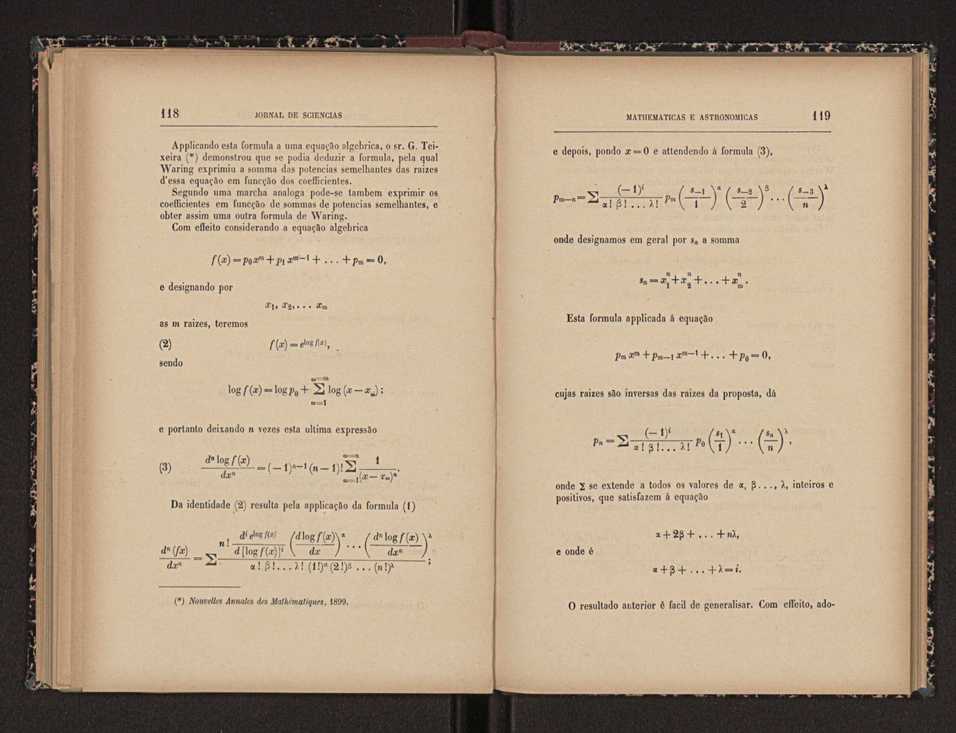 118 JORNAL DE SCIENCIAS
Applicando esta formula a uma equação algebrica, o sr. G. Tei-
xeira (*) demonstrou que se podia deduzir a formula, pela qual
Waring exprimiu a somma das potencias semelhantes das raizes
d'essa equação em funcção dos coefficientes.
Segundo uma marcha analoga pode-se tambem exprimir os
coefficientes em funcção de sommas de potencias semelhantes, e
obter assim uma outra formula de Waring.
Com effeito considerando a equação algebrica
f(x) = p₀xᵐ + p₁xᵐ⁻¹ + . . . + pₘ = 0,
e designando por
x₁, x₂, . . . xₘ
as m raizes, teremos
(2) f(x) = e^{log f(x)},
sendo
log f(x) = log p₀ + ∑_{ω=1}^{ω=m} log (x — x_ω) ;
e portanto deixando n vezes esta ultima expressão
(3) \frac{dⁿ log f(x)}{dxⁿ} = (— 1)ⁿ⁻¹ (n — 1)! ∑_{ω=1}^{ω=m} \frac{1}{(x — x_ω)ⁿ}.
Da identidade (2) resulta pela applicação da formula (1)
\frac{dⁿ (fx)}{dxⁿ} = ∑ \frac{n! \frac{dⁱ e^{log f(x)}}{d [log f(x)]ⁱ} (\frac{d log f(x)}{dx})^α . . . (\frac{dⁿ log f(x)}{dxⁿ})^λ}{α! β! . . . λ! (1!)^α (2!)^β . . . (n!)^λ} ;
(*) Nouvelles Annales des Mathématiques, 1899.
MATHEMATICAS E ASTRONOMICAS 119
e depois, pondo x = 0 e attendendo á formula (3),
p_{m—n} = ∑ \frac{(— 1)ⁱ}{α! β! . . . λ!} pₘ (\frac{s_{—1}}{1})^α (\frac{s_{—2}}{2})^β . . . (\frac{s_{—3}}{n})^λ
onde designamos em geral por sₙ a somma
sₙ = x₁ⁿ + x₂ⁿ + . . . + xₘⁿ.
Esta formula applicada á equação
pₘ xᵐ + pₘ₋₁ xᵐ⁻¹ + . . . + p₀ = 0,
cujas raizes são inversas das raizes da proposta, dá
pₙ = ∑ \frac{(— 1)ⁱ}{α! β! . . . λ!} p₀ (\frac{s₁}{1})^α . . . (\frac{sₙ}{n})^λ,
onde ∑ se extende a todos os valores de α, β . . ., λ, inteiros e
positivos, que satisfazem á equação
α + 2β + . . . + nλ,
e onde é
α + β + . . . + λ = i.
O resultado anterior é facil de generalisar. Com effeito, ado-